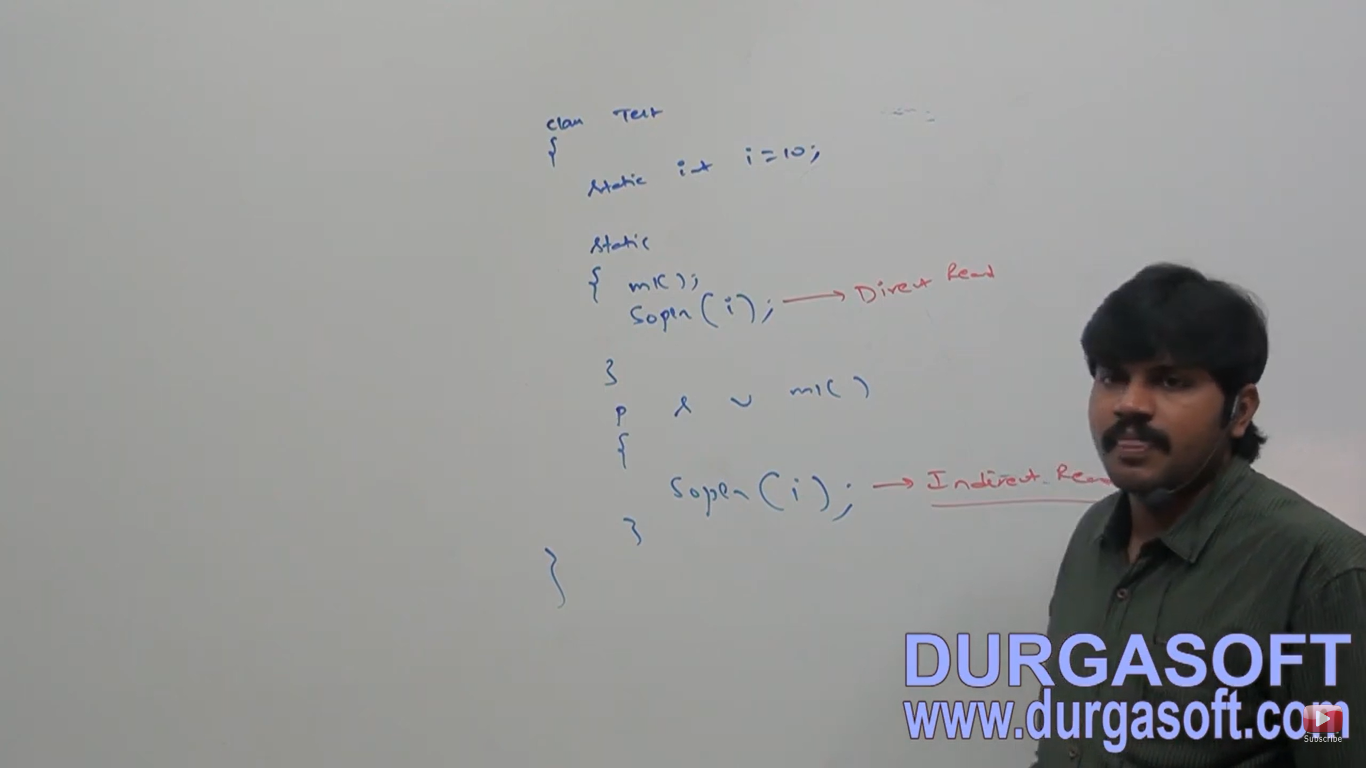 class Test
{
static int i=10;
static
{ m1();
Sopln(i); → Direct Read
}
p s v m1()
{
Sopln(i); → Indirect Read
}
}
DURGASOFT
www.durgasoft.com
Subscribe